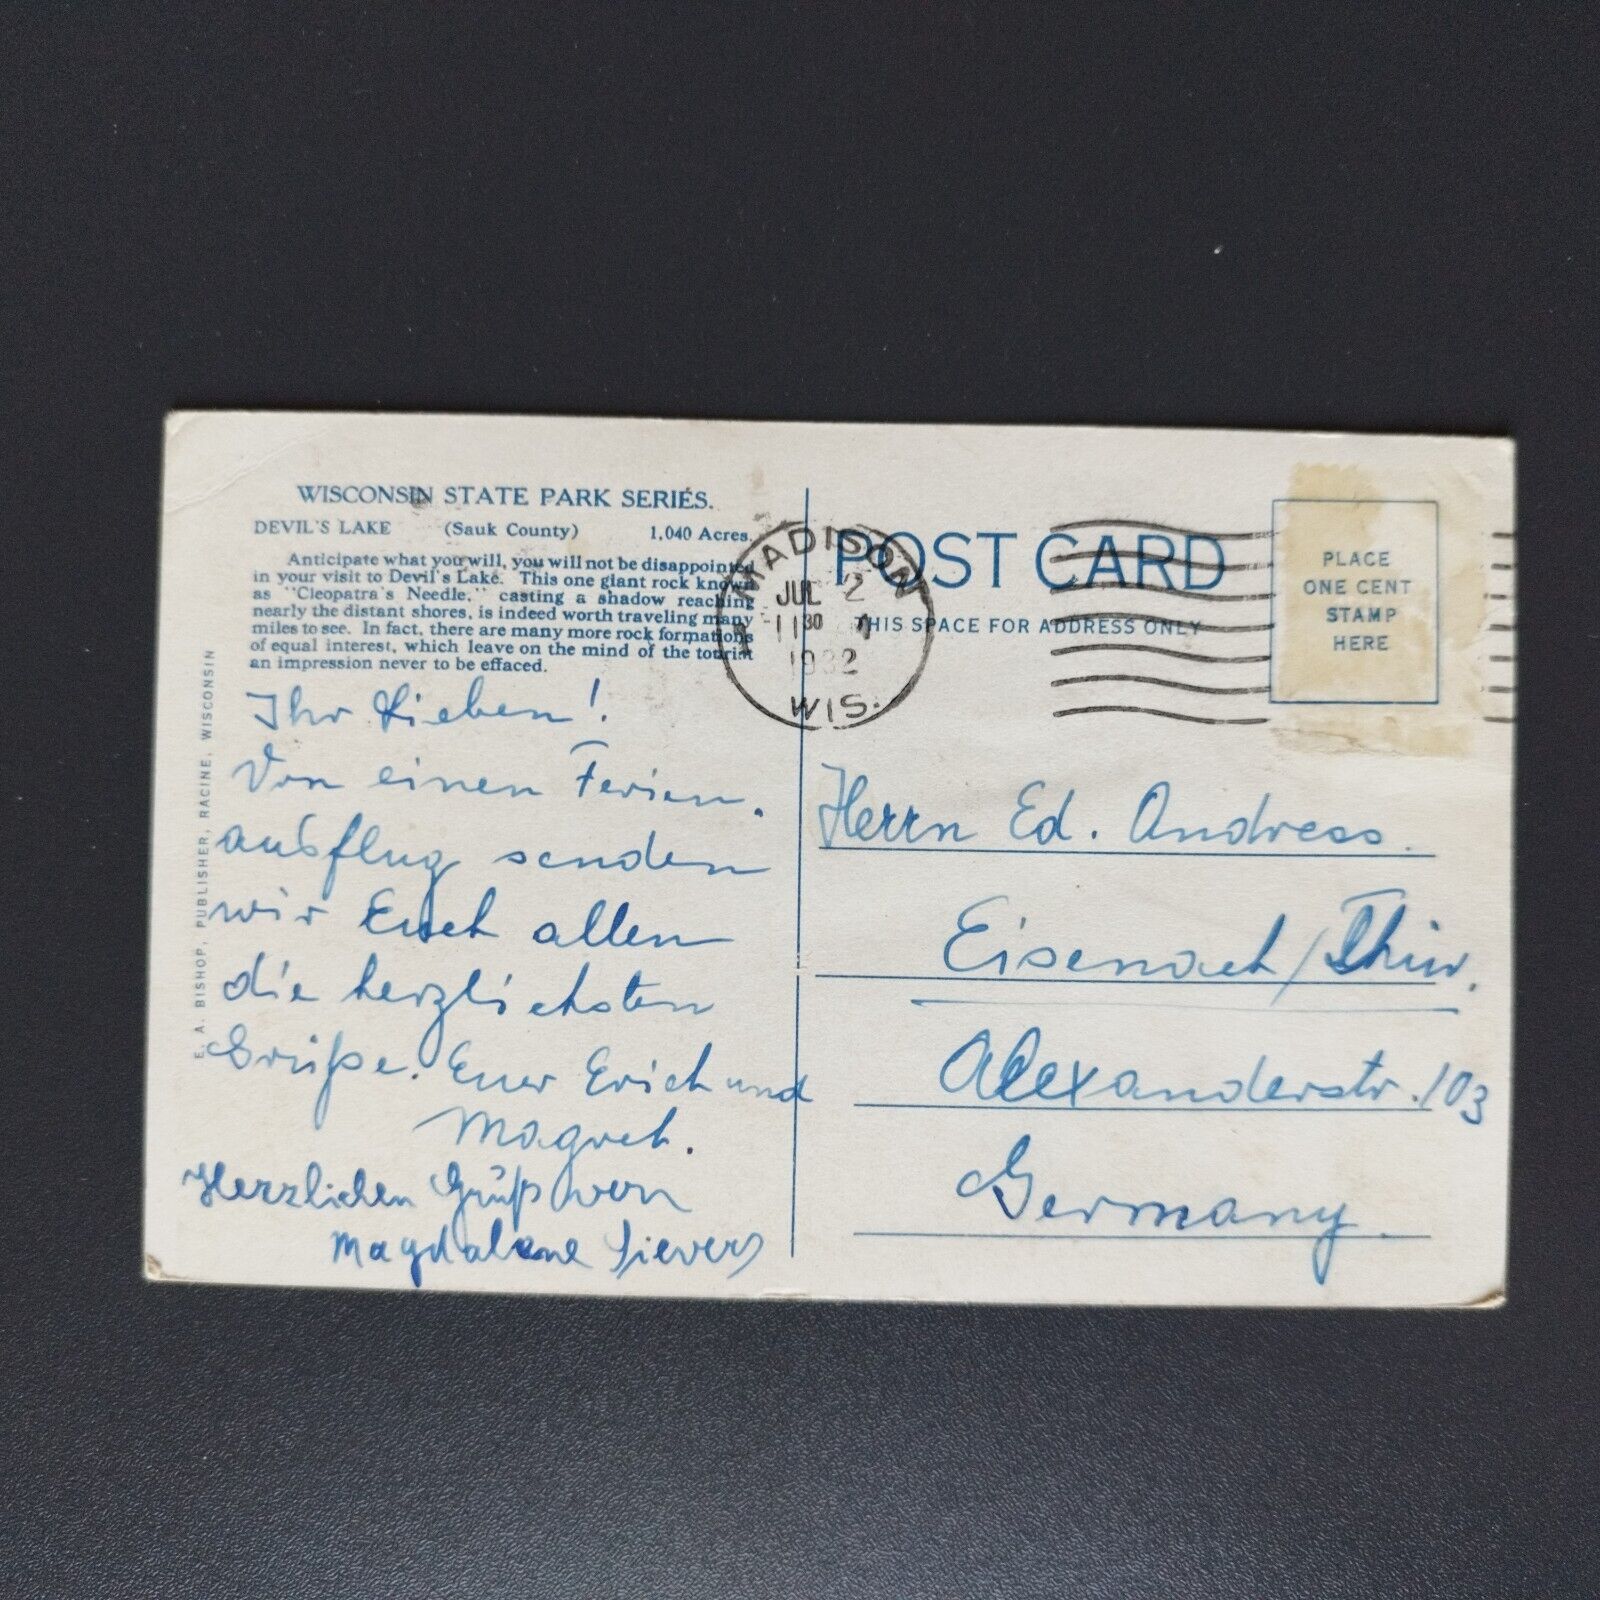 WISCONSIN STATE PARK SERIES.
DEVIL'S LAKE (Sauk County) 1,040 Acres.
Anticipate what you will, you will not be disappointed
in your visit to Devil's Lake. This one giant rock known
as "Cleopatra's Needle," casting a shadow reaching
nearly the distant shores, is indeed worth traveling many
miles to see. In fact, there are many more rock formations
of equal interest, which leave on the mind of the tourist
an impression never to be effaced.
E. A. BISHOP, PUBLISHER, RACINE, WISCONSIN
Ihr Lieben!
Von einen Ferien.
ausflug senden
wir Euch allen
die herzlichsten
Grüße. Euer Erich und
Magret.
Herzlichen Gruß von
Magdalene Sievers
MADISON
JUL 2
11 30
1932
WIS.
POST CARD
THIS SPACE FOR ADDRESS ONLY
PLACE
ONE CENT
STAMP
HERE
Herrn Ed. Andress.
Eisenach/Thür.
Alexanderstr. 103
Germany.